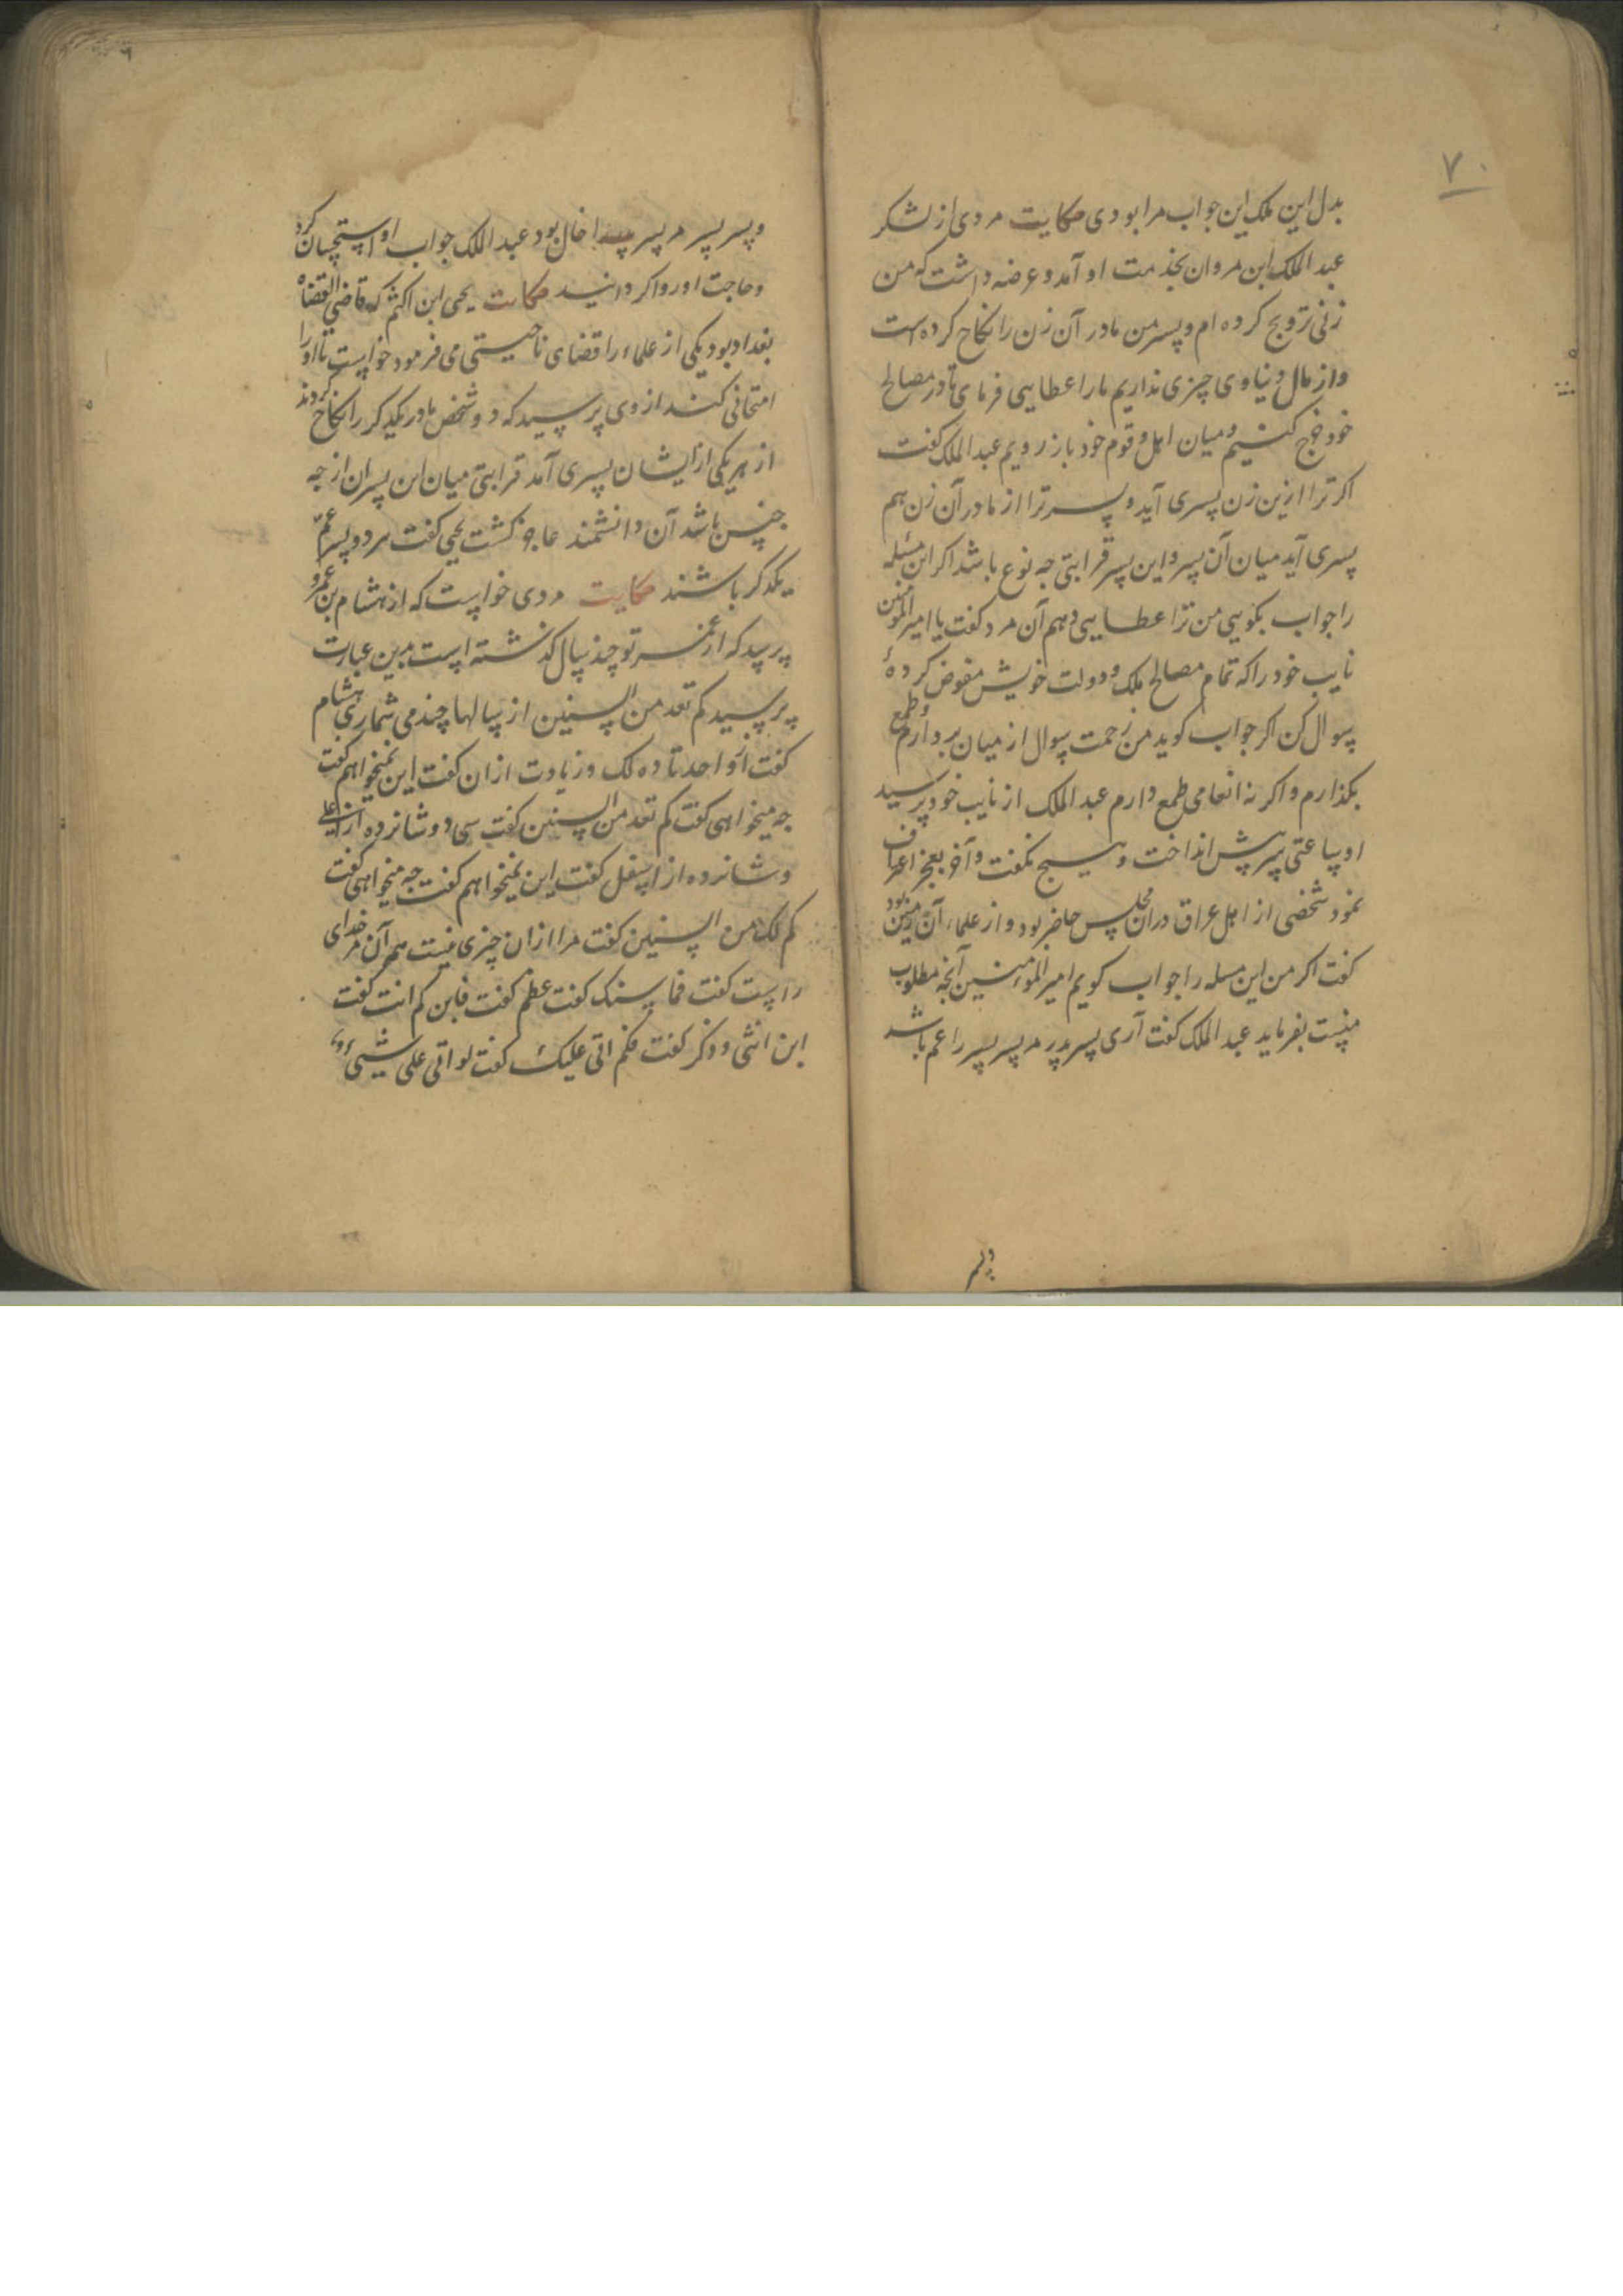 ۷۰
بدل این ملک این جواب مرا بودی حکایت مردی از لشکر
عبد الملک ابن مروان بخدمت او آمد و عرضه داشت که من
زنی تزویج کرده ام و پسر من مادر آن زن را نکاح کرده است
واز مال دنیاوی چیزی نداریم ما را عطایی فرمای تا در مصالح
خود خرج کنیم و میان اهل و قوم خود باز رویم عبد الملک کفت
اکر ترا ازین زن پسری آید و پسر ترا از مادر آن زن هم
پسری آید میان آن پسر و این پسر قرابتی جه نوع باشد اکر این مسئله
را جواب بکویی من ترا عطایی دهم آن مرد کفت یا امیر المومنین
نایب خود را که تمام مصالح ملک و دولت خویش مفوض کردهٔ
سوال کن اکر جواب کوید من زحمت سوال از میان بردارم و طمع
بکذارم و اکر نه انعامی طمع دارم عبد الملک از نایب خود پرسید
او ساعتی سر پیش انداخت و هیچ نکفت و آخر بعجز اعتراف
نمود شخصی از اهل عراق دران مجلس حاضر بود و از علماء آن زمین بود
کفت اکر من این مسله را جواب کویم امیر المومنین آنجه مطلوب
منست بفرماید عبد الملک کفت آری پسر پدر مر پسر پسر را عم باشد
و پسر
و پسر پسر مر پسر پدر را خال بود عبد الملک جواب او استحسان کرد
و حاجت او روا کردانید حکایت یحیی ابن اکثم که قاضی القضاه
بغداد بود یکی از علماء را قضای ناحیتی می فرمود خواست تا او را
امتحانی کند از وی پرسید که دو شخص مادر یکدکر را نکاح کردند
از هر یکی از ایشان پسری آمد قرابتی میان این پسران از جه
جنس باشد آن دانشمند عاجز کشت یحیی کفت هر دو پسر عمّ
یکدکر باشند حکایت مردی خواست که از هشام بن عمرو
پرسد که از عمر تو چند سال کذشته است بدین عبارت
پرسید کم تعد من السنین از سالها چند می شماری هشام
کفت از واحد تا ده لک و زیادت ازان کفت این نمیخواهم کفت
جه میخواهی کفت کم تعد من السنین کفت سی و دو شانزده از اعلی
و شانزده از اسفل کفت این نمیخواهم کفت جه میخواهی کفت
کم لک من السنین کفت مرا ازان چیزی نیست همه آن مر خدای
راست کفت فما سنک کفت عظم کفت فابن کم انت کفت
ابن انثی و ذکر کفت فکم اتی علیک کفت لو اتی علی شیئ